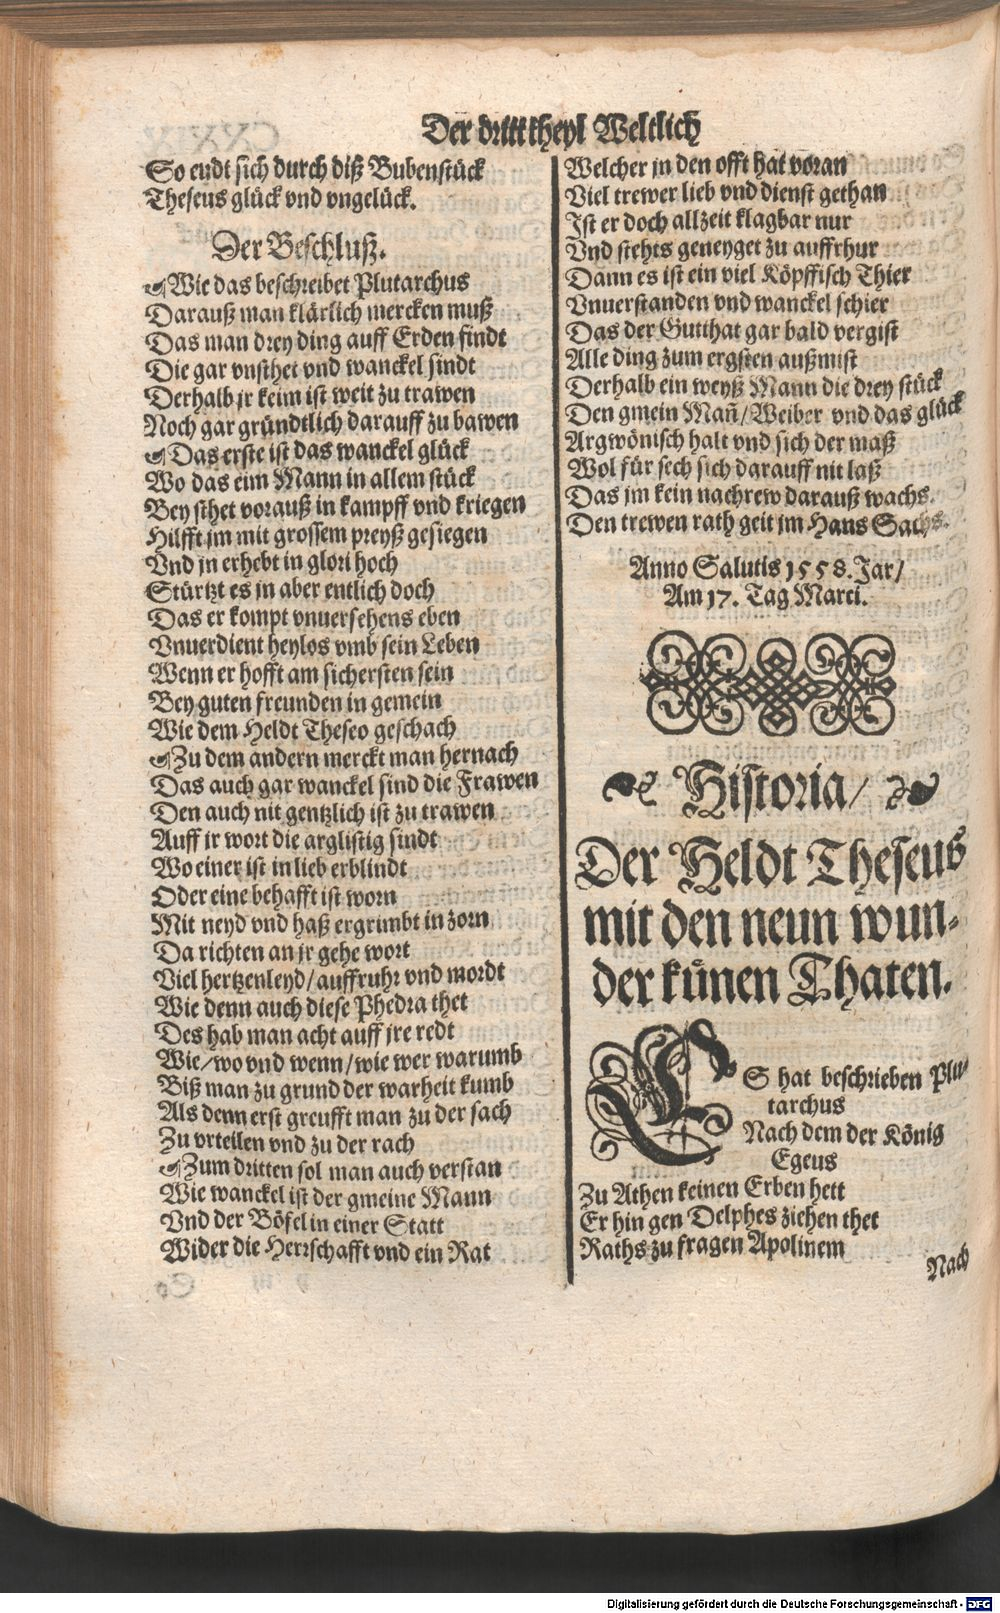 Der dritt theyl Weltlich
So endt sich durch diß Bubenstück
Theseus glück vnd vngelück.
Der Beschluß.
Wie das beschreibet Plutarchus
Darauß man klärlich mercken muß
Das man drey ding auff Erden findt
Die gar vnsthet vnd wanckel sindt
Derhalb jr keim ist weit zu trawen
Noch gar gründtlich darauff zu bawen
Das erste ist das wanckel glück
Wo das eim Mann in allem stück
Bey sthet vorauß in kampff vnd kriegen
Hilfft jm mit grossem preyß gesiegen
Vnd jn erhebt in glori hoch
Stürtzt es jn aber entlich doch
Das er kompt vnuersehens eben
Vnuerdient heylos vmb sein Leben
Wenn er hofft am sichersten sein
Bey guten freunden in gemein
Wie dem Heldt Theseo geschach
Zu dem andern merckt man hernach
Das auch gar wanckel sind die Frawen
Den auch nit gentzlich ist zu trawen
Auff jr wort die arglistig sindt
Wo einer ist in lieb erblindt
Oder eine behafft ist worn
Mit neyd vnd haß ergrimbt in zorn
Da richten an jr gehe wort
Viel hertzenleyd/auffruhr vnd mordt
Wie denn auch diese Phedra thet
Des hab man acht auff jre redt
Wie/wo vnd wenn/wie wer warumb
Biß man zu grund der warheit kumb
Als denn erst greufft man zu der sach
Zu vrteilen vnd zu der rach
Zum dritten sol man auch verstan
Wie wanckel ist der gmeine Mann
Vnd der Böfel in einer Statt
Wider die Herrschafft vnd ein Rat
Welcher jn den offt hat voran
Viel trewer lieb vnd dienst gethan
Ist er doch allzeit klagbar nur
Vnd stehts geneyget zu auffrhur
Dann es ist ein viel Köpffisch Thier
Vnuerstanden vnd wanckel schier
Das der Gutthat gar bald vergist
Alle ding zum ergsten außmist
Derhalb ein weyß Mann die drey stück
Den gmein Mañ/Weiber vnd das glück
Argwönisch halt vnd sich der maß
Wol für sech sich darauff nit laß
Das jm kein nachrew darauß wachs.
Den trewen rath geit jm Hans Sachs.
Anno Salutis 1558. Jar/
Am 17. Tag Marci.
Historia/
Der Heldt Theseus
mit den neun wun-
der künen Thaten.
ES hat beschrieben Plu-
tarchus
Nach dem der König
Egeus
Zu Athen keinen Erben hett
Er hin gen Delphes ziehen thet
Raths zu fragen Apolinem
Nach
Digitalisierung gefördert durch die Deutsche Forschungsgemeinschaft - DFG